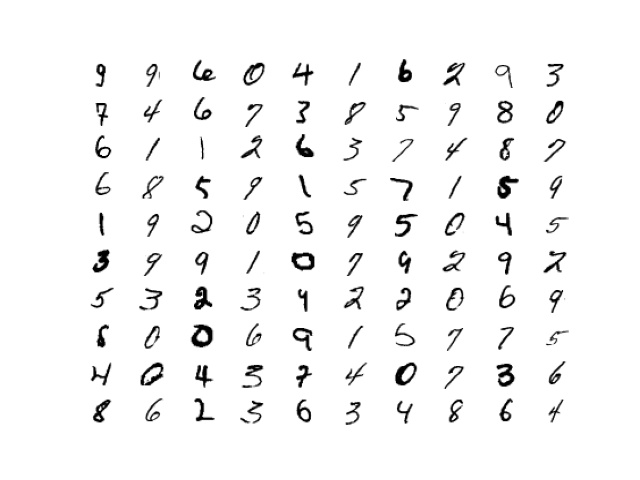 9 9 6 0 4 1 6 2 9 3
7 4 6 7 3 8 5 9 8 0
6 1 1 2 6 3 7 4 8 7
6 8 5 9 1 5 7 1 5 9
1 9 2 0 5 9 5 0 4 5
3 9 9 1 0 7 9 2 9 2
5 3 2 3 4 2 2 0 6 9
8 0 0 6 9 1 5 7 7 5
4 0 4 3 7 4 0 7 3 6
8 6 2 3 6 3 4 8 6 4